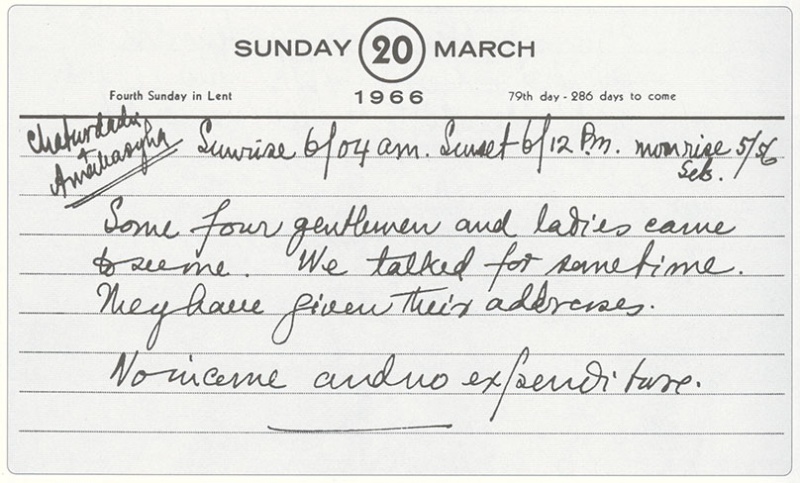 SUNDAY 20 MARCH
Fourth Sunday in Lent 1966 79th day - 286 days to come
Chaturdasi
+
Amabasyha
Sunrise 6/04 am. Sunset 6/12 P.m. moonrise 5/56
Sets.
Some four gentlemen and ladies came
to see me. We talked for sometime.
They have given their addresses.
No income and no expenditure.